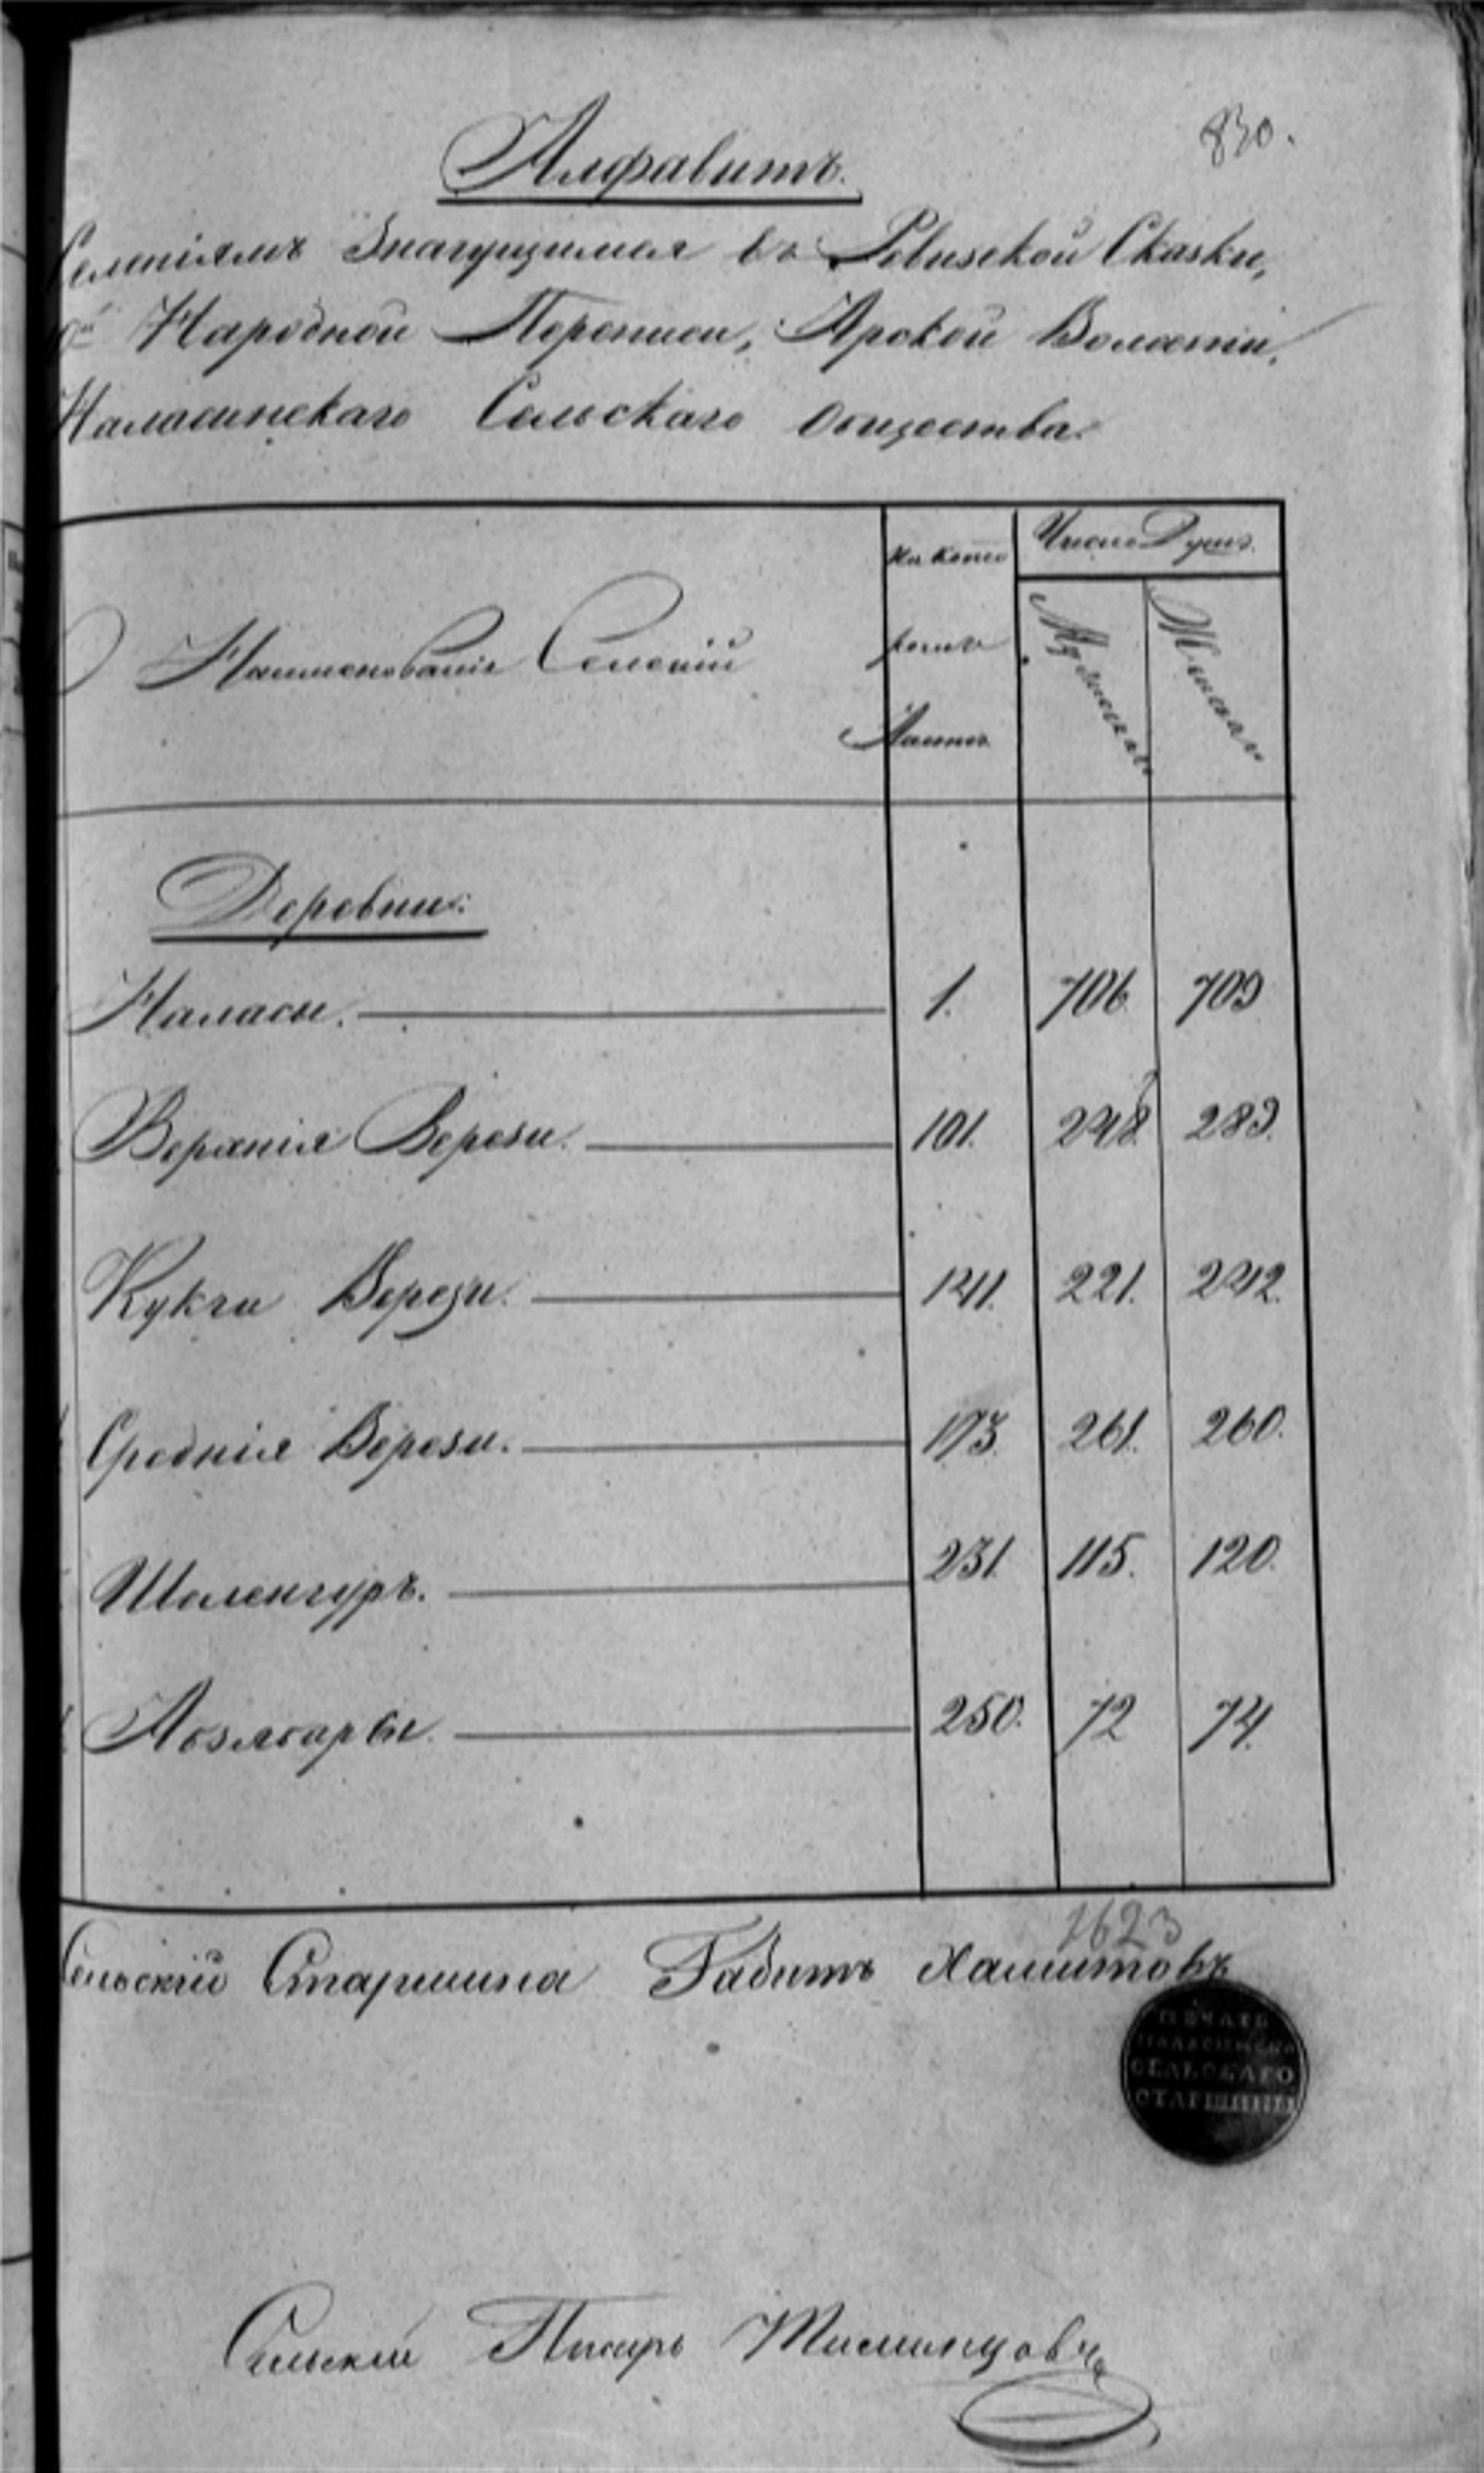 830.
Алфавитъ.
Селеніямъ Значущимся въ Ревизской Сказки,
Народной Переписи, Арской Волости,
Наласинскаго Сельскаго Общества.
Наименованіе Селеній
На коемъ
Число Душъ.
Мужескаго
Женскаго
Деревни:
Наласы. 1. 706. 709
Верхнія Верези. 101. 248. 283.
Кукчи Верези. 141. 221. 242.
Средніе Верези. 193. 261. 260.
Шаленгуръ. 231. 115. 120.
Аозмсарбы. 250. 72 74.
1623
Сельскій Старшина Габитъ Хамитовъ
ПЕЧАТЬ
НАЛАСИНСКА
СЕЛЬСКАГО
СТАРШИНЫ
Сельскій Писарь